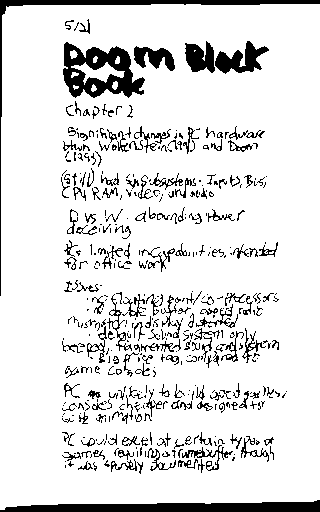 5/21
Doom Black
Book
Chapter 2
Significant changes in PC hardware
btwn Wolfenstein (1991) and Doom
(1993)
(Still) had six subsystems: Inputs, Bus,
CPU RAM, video, and audio
D vs W: abounding power
deceiving
PCs limited in capabilities, intended
for office work
Issues:
· no floating point/co-processors
· no double buffer, aspect ratio
mismatch in display distorted
· default sound system only
beeped, fragmented sound
· Big price tag, compared to
game consoles
PC unlikely to build good games,
consoles cheaper and designed for
animation
PC could excel at certain types of
games, requiring a framebuffer, though
it was sparsely documented